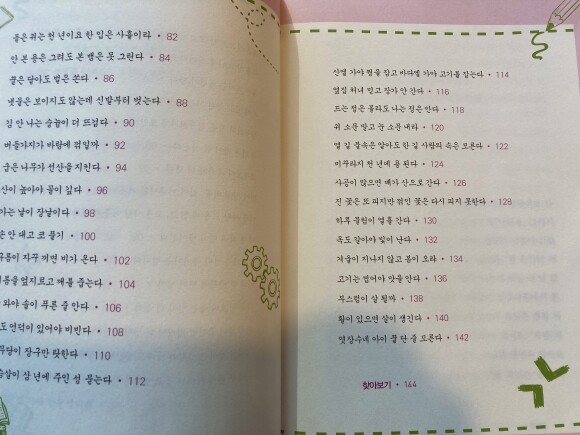 들은 귀는 천 년이요 한 입은 사흘이라 • 82
안 본 용은 그려도 본 뱀은 못 그린다 • 84
꿀은 달아도 벌은 쏜다 • 86
냇물은 보이지도 않는데 신발부터 벗는다 • 88
김 안 나는 숭늉이 더 뜨겁다 • 90
버들가지가 바람에 꺾일까 • 92
굽은 나무가 선산을 지킨다 • 94
산이 높아야 골이 깊다 • 96
가는 날이 장날이다 • 98
은 안 대고 코 풀기 • 100
구름이 자꾸 끼면 비가 온다 • 102
기름을 엎지르고 깨를 줍는다 • 104
와야 솔이 푸른 줄 안다 • 106
도 언덕이 있어야 비빈다 • 108
무당이 장구만 탓한다 • 110
슴살이 삼 년에 주인 성 묻는다 • 112
산엘 가야 꿩을 잡고 바다엘 가야 고기를 잡는다 • 114
옆집 처녀 믿고 장가 안 간다 • 116
드는 정은 몰라도 나는 정은 안다 • 118
귀 소문 말고 눈 소문 내라 • 120
열 길 물속은 알아도 한 길 사람의 속은 모른다 • 122
미꾸라지 천 년에 용 된다 • 124
사공이 많으면 배가 산으로 간다 • 126
진 꽃은 또 피지만 꺾인 꽃은 다시 피지 못한다 • 128
하루 물림이 열흘 간다 • 130
옥도 갈아야 빛이 난다 • 132
겨울이 지나지 않고 봄이 오랴 • 134
고기는 씹어야 맛을 안다 • 136
부스럼이 살 될까 • 138
활이 있으면 살이 생긴다 • 140
엿장수네 아이 꿀 단 줄 모른다 • 142
찾아보기 • 144